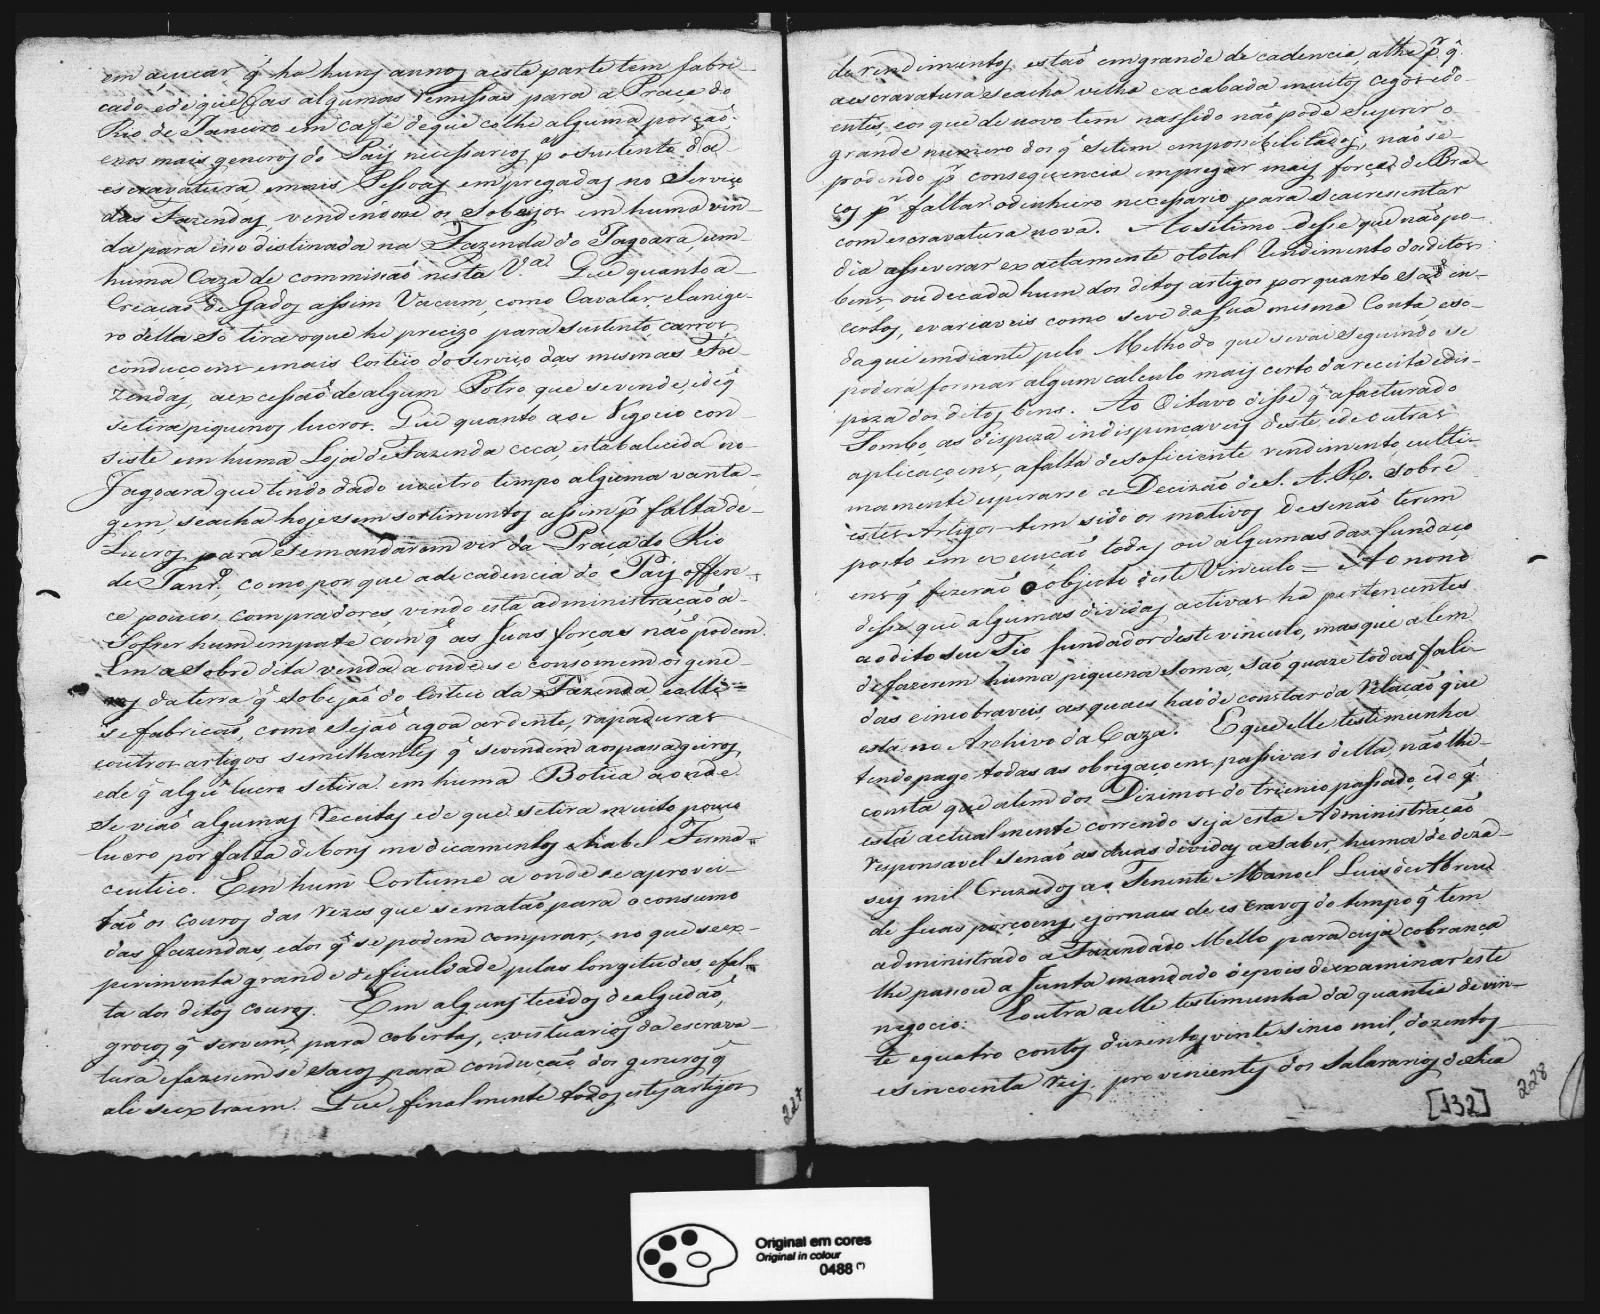 em açucar q̃ ha huns annos aesta parte tem fabri-
cado, ede que fas algumas remissas para a Praça do
Rio de Janeiro em café deque colhe alguma porção.
enos mais generos do Paiz necessarios pª o sustento da
escravatura, emais Pessoas empregadas no Serviço
das Fazendas vendendose os Sobejos em huma ven-
da para isso distinada na Fazenda do Jagoara, em
huma Caza de commissaõ nesta Vª. Que quanto a
Creaçaõ de Gados assim Vacum, como Cavalar, elanige-
ro della só tira oque he precizo para sustento, carros,
conduçoens emais Costeio do Serviço das mesmas Fa-
zendas, aexcessaõ de algum Potro que sevende, ideq̃
setira piquenos lucros. Que quanto aoe Negocio con-
siste em huma Loja de Fazenda ceca, estabalecida no
Jagoara que tendo dado noutro tempo alguma vanta-
gem, seacha hoje sem sortimentos assim pª falta de
Lucros para semandarem vir da Praça do Rio
de Janrº, como por que a decadencia do Paiz offere-
ce poucos compradores, vindo esta administração a
Sofrer hum empate comq̃ as suas forças naõ podem.
Em a Sobredita venda a onde se consomem os gene-
ros da terra q̃ Sobejaõ do Costeio da Fazenda eahi
se fabricaõ, como sejaõ agoa ardente, rapaduras
eoutros artigos semilhantes q̃ sevendem aos passageiros
ede q̃ algũ lucro setira. em huma Botica aonde
se viaõ algumas Receitas ede que setira muito pouco
lucro por falta de bons medicamentos ehabel Farma-
ceutico. Em hum Cortume a onde se aprovei-
taõ os couros das rezes que sematáõ para o consumo
das fazendas, edos q̃ se podem comprar; no que seex-
perimenta grande deficuldade pelas longitudes, efal-
ta dos ditos couros. Em alguns tecidos dealgudaõ,
groços q̃ servem para cobertas, evestuarios da escrava-
tura efazerem se sacos para conduçaõ dos generos q̃
ali seextraem. Que finalmente todos estes artigos
227
de rendimentos estaõ emgrande decadencia, athe pʳ q̃
aescravatura seacha velha eacabada muitos cegos edo-
entes, eos que de novo tem nassido naõ pode suprir o
grande numero dos q̃ setem emposebelitados, naõ se
podendo pʳ consequencia empregar mais forças de Bra-
ços pʳ faltar odinheiro necessario para seacresentar
com escravatura nova. Aosetimo disse que naõpo-
dia asseverar exactamente ototal Rendimento dosditos
bens, ou decada hum dos ditos artigos porquanto saõ in-
certos, evariaveis como seve da sua mesma Conta, eso-
daqui emdiante pelo Methodo que sevai seguindo se
poderá formar algum calculo mais certo da receita edis-
peza dos ditos bens. Ao Oitavo disse q̃ afactura do
Tombo, as dispezas indispençaveis deste, ede outras
aplicaçoens, afalta desoficiente rendimento, eulti-
mamente esperarse a Decizaõ de S. A. R. Sobre
estes Artigos tem sido os motivos de senaõ terem
posto em execuçaõ todas ou algumas das fundaço
ens q̃ fizeraõ o objecto deste Vinculo = Ao nono
disse que algumas dividas activas ha pertencentes
aodito seu Tio fundador deste vinculo, mas que alem
defazerem huma piquena soma, saõ quaze todas fali-
das eincobraveis, as quaes haõ de constar da Relaçaõ que
está no Archivo da Caza. Eque elle testimunha
tendo pago todas as obrigaçoens passivas della, naõ lhe
consta que alem dos Dizimos do trienio passado, edo q̃
está actualmente correndo seja esta Administraçaõ
responsavel senaõ as duas dividas a saber, huma de deza-
seis mil Cruzados ao Tenente Manoel Luis de Abreu
de suas porçoens, ejornaes de escravos do tempo q̃ tem
administrado a Fazenda do Mello para cuja cobrança
lhe passou a Junta mandado depois de examinar este
negocio. Eoutra aelle testimunha da quantia de vin-
te equatro contos duzentos vinte sinco mil, dozentos
esincoenta reis, provenientes dos Salararios de Sua
[132]
228
Original em cores
Original in colour
0488 (*)